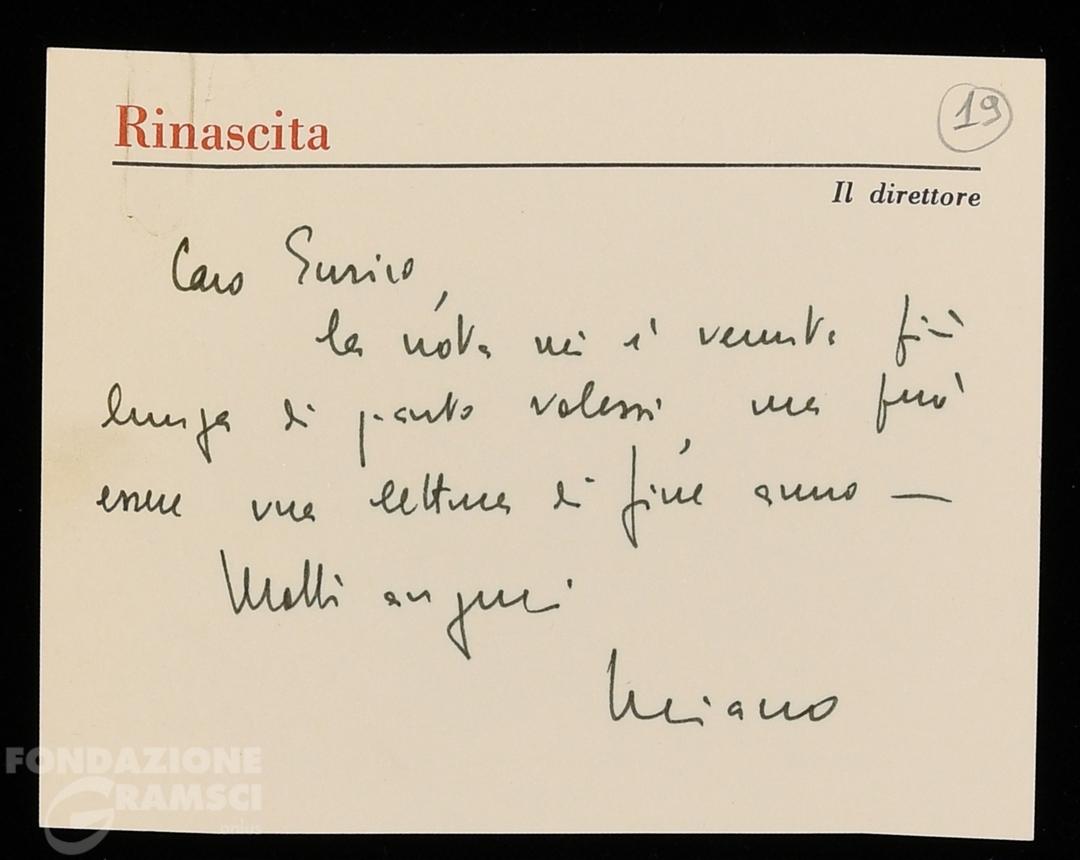 Rinascita
19
Il direttore
Caro Enrico,
la nota mi è venuta più
lunga di quanto volessi, ma può
essere una lettura di fine anno —
Molti auguri
Luciano
FONDAZIONE
GRAMSCI
onlus